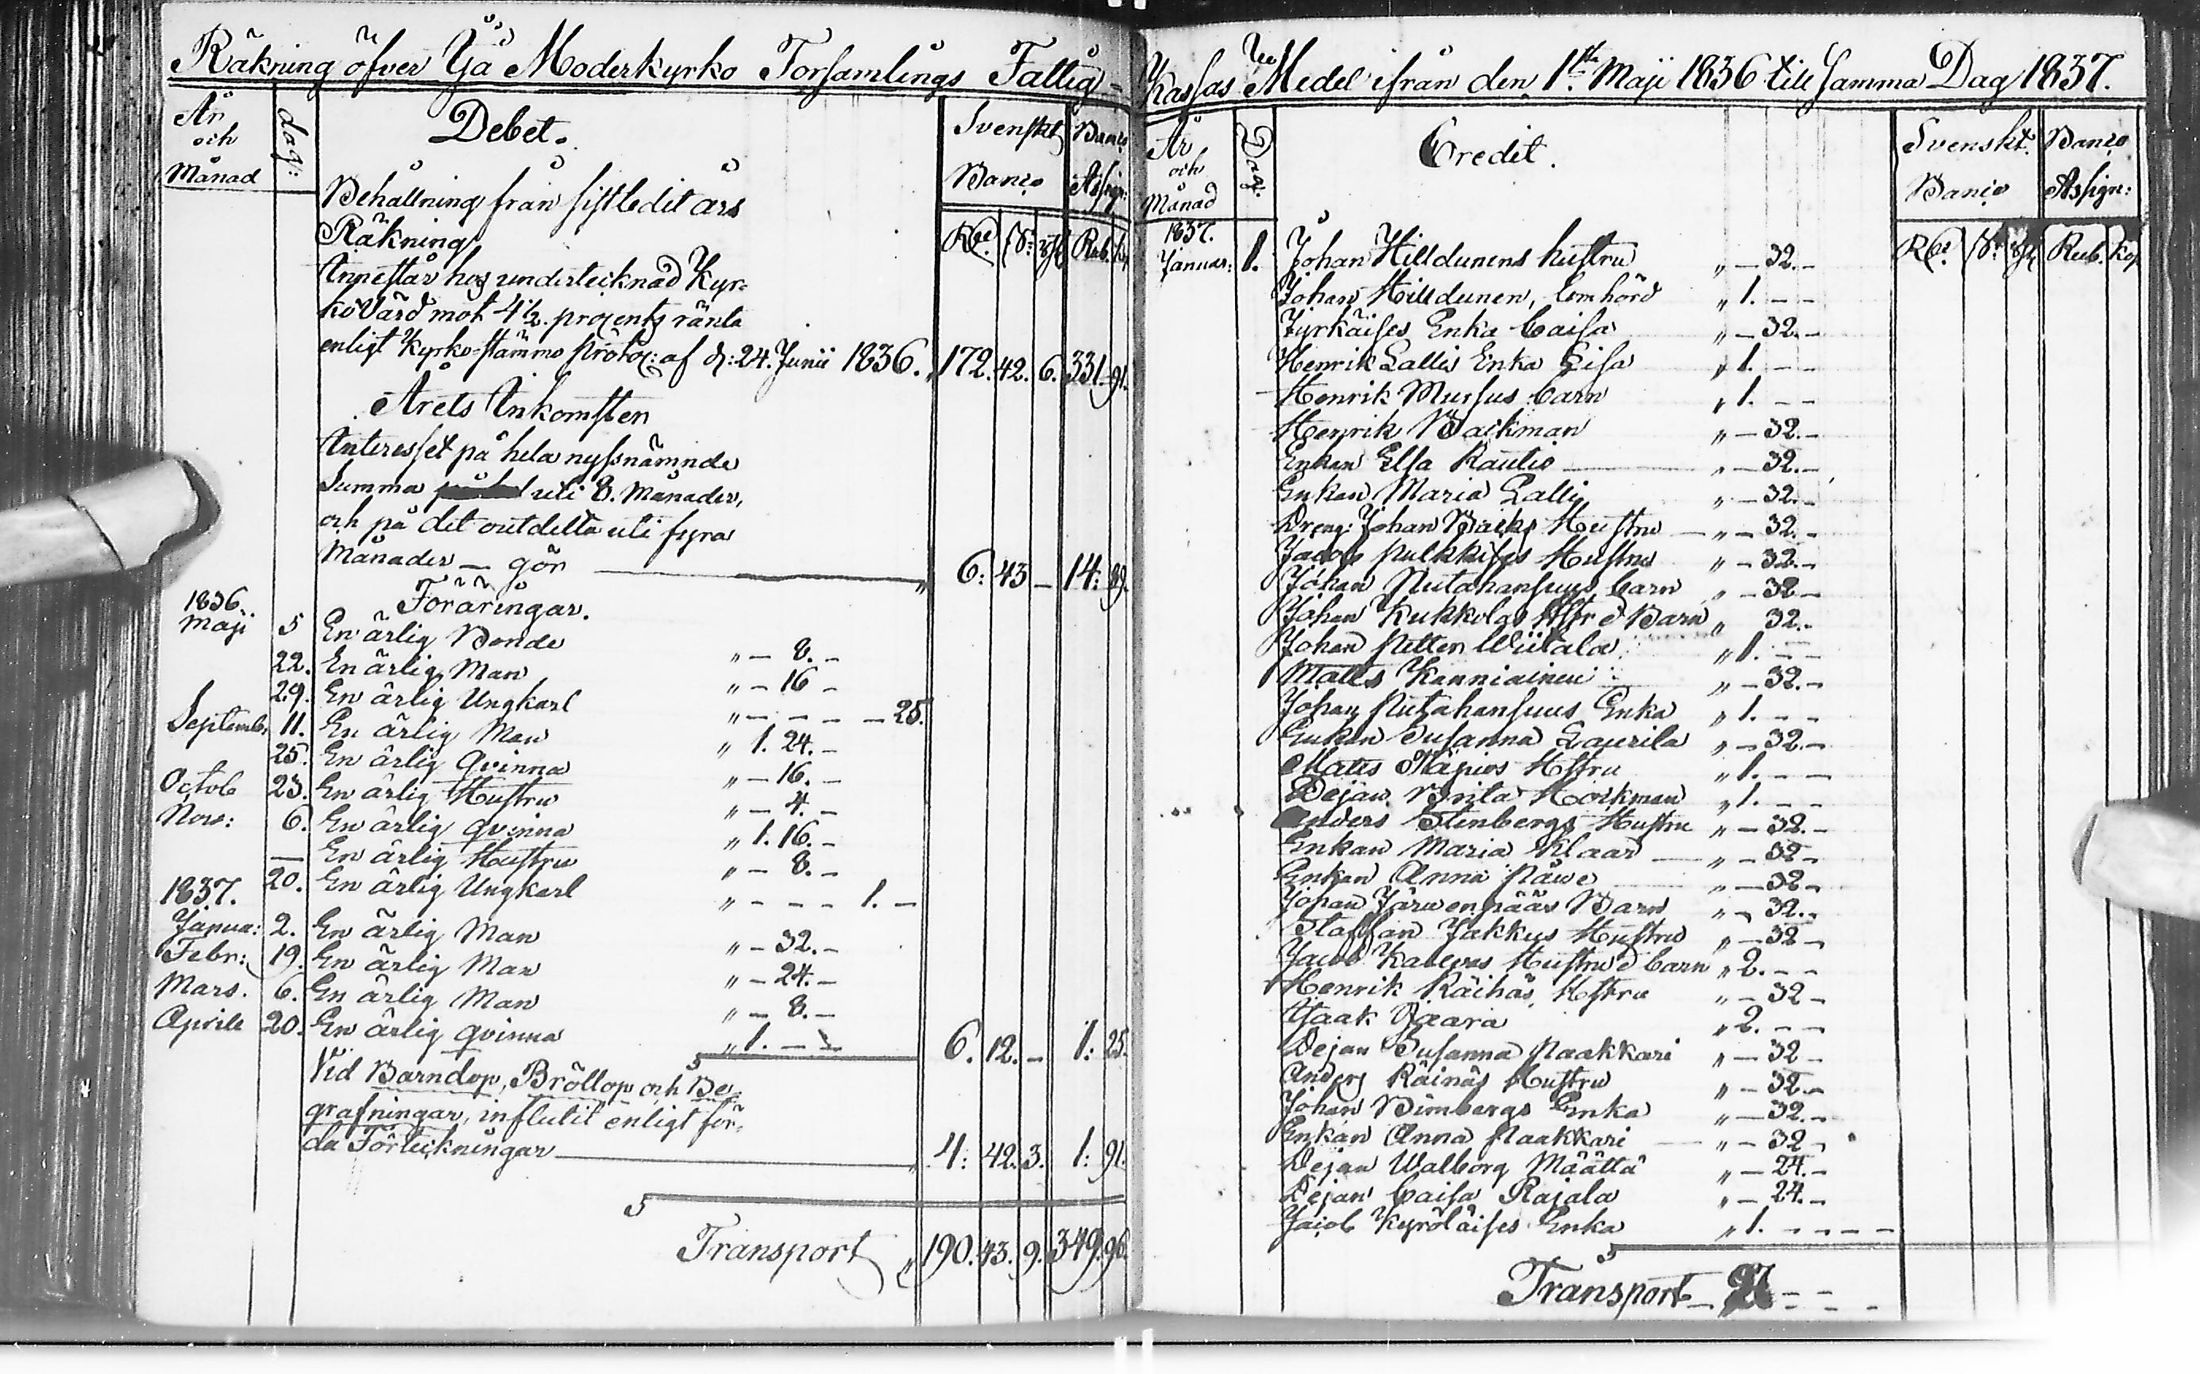 Räkning öfver Ijå Moderkyrko Forsamlings Fattig-
År och Månad
dag:
Debet.
Svenskt Banco
Banco Assign:
Rd. s. rst. Rub. kop
Behållning från sistledit års
Räkning
Innestår hos undertecknad Kyr-
kovärd mot 4½ procents ränta
enligt Kyrko-stämmo protoc: af d: 24. Junii 1836. „ 172. 42. 6. 331. 91.
Årets Inkomster
Interesset på hela nyssnämnde
Summa uti 8. Månader,
och på det outdelta uti fyra
Månader — gör „ 6: 43 — 14: 89.
Föräringar.
1836. Maji 5 En ärlig Bonde „ — 8. —
22. En ärlig Man „ — 16 —
29. En ärlig Ungkarl „ — — — — 25.
Septemb. 11. En ärlig Man „ 1. 24. —
25. En ärlig Qvinna „ — 16. —
Octob 23. En ärlig Hustru „ — 4. —
Nov: 6. En ärlig qvinna „ 1. 16. —
— En ärlig Hustru „ — 8. —
20. En ärlig Ungkarl „ — — — 1. —
1837.
Janua: 2. En ärlig Man „ — 32. —
Febr: 19. En ärlig Man „ — 24. —
Mars. 6. En ärlig Man „ — 8. —
Aprill 20. En ärlig qvinna „ 1. — — 6. 12. — 1: 25.
Vid Barndop, Bröllop och Be-
grafningar, influtit enligt för-
da Förteckningar „ 4: 42. 3. 1: 91.
Transport „ 190. 43. 9. 349. 96.
Kassas Medel ifrån den 1sta Maji 1836 till samma Dag 1837.
År och Månad
Dag.
Credit.
Svenskt. Banco
Banco Assign:
Rd. s. rst. Rub. kop
1837.
Januar: 1. Johan Hilldunens hustru „ — 32. —
Johan Hilldunen, Lomhörd „ 1. — —
Jyrkäises Enka Caisa „ — 32. —
Henrik Lallis Enka Lisa „ 1. — —
Henrik Mursus barn „ 1. — —
Henrik Backman „ — 32. —
Enkan Elsa Rautio „ — 32. —
Enkan Maria Lalli „ — 32. —
Dreng: Johan Backs Hustru „ — 32. —
Jacob Pulkkises Hustru „ — 32. —
Johan Rutahansuus barn „ — 32 —
Johan Kukkolas Hstr o Barn „ 32. —
Johan Petter Wiitala „ 1. — —
Matts Kanniainen „ — 32. —
Johan Rutahansuus Enka „ 1. — —
Enkan Susanna Laurila „ — 32. —
Matts Hstru „ 1. — —
Dejan Brita Hockman „ 1. — —
Anders Stenbergs Hustru „ — 32. —
Enkan Maria Klaar „ — 32 —
Enkan Anna „ — 32 —
Johan Järwenpääs Barn „ — 32. —
Staffan Jakkus Hustru „ — 32 —
Jacob Kalevas Hustru o barn „ 2. — —
Henrik Räihäs Hstru „ — 32 —
Isaak Paara „ 2. — —
Dejan Susanna Paakkari „ — 32 —
Anders Räinäs Hustru „ — 32. —
Johan Bimbergs Enka „ — 32. —
Enkan Anna Paakkari „ — 32 —
Dejan Walborg Määttä „ — 24. —
Dejan Caisa Rajala „ — 24. —
Jacob Kyröläises Enka „ 1. — — — —
Transport — — —